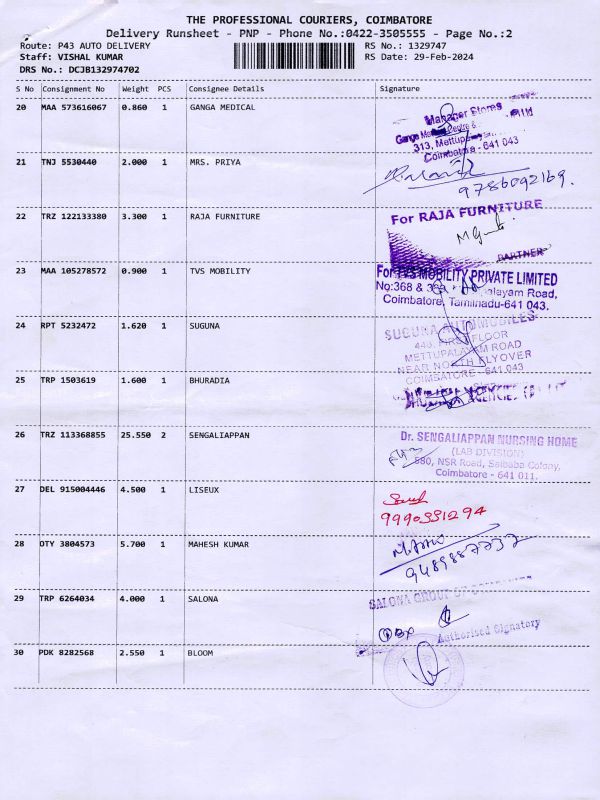 THE PROFESSIONAL COURIERS, COIMBATORE
Delivery Runsheet - PNP - Phone No.:0422-3505555 - Page No.:2
Route: P43 AUTO DELIVERY RS No.: 1329747
Staff: VISHAL KUMAR RS Date: 29-Feb-2024
DRS No.: DCJB132974702
S No Consignment No Weight PCS Consignee Details Signature
20 MAA 573616067 0.860 1 GANGA MEDICAL
Manager Stores
Ganga Centre &
313, Mettup
Coimbatore - 641 043
21 TNJ 5530440 2.000 1 MRS. PRIYA
9786092169.
22 TRZ 122133380 3.300 1 RAJA FURNITURE
For RAJA FURNITURE
PARTNER
23 MAA 105278572 0.900 1 TVS MOBILITY
For TVS MOBILITY PRIVATE LIMITED
No:368 & 369, palayam Road,
Coimbatore, Tamilnadu-641 043.
24 RPT 5232472 1.620 1 SUGUNA
SUGUNA AUTOMOBILES
443, FIRST FLOOR
METTUPALAYAM ROAD
NEAR NORTH FLYOVER
COIMBATORE - 641 043
25 TRP 1503619 1.600 1 BHURADIA
26 TRZ 113368855 25.550 2 SENGALIAPPAN
Dr. SENGALIAPPAN NURSING HOME
(LAB DIVISION)
580, NSR Road, Saibaba Colony,
Coimbatore - 641 011.
27 DEL 915004446 4.500 1 LISEUX
9990331294
28 OTY 3804573 5.700 1 MAHESH KUMAR
9489887737
29 TRP 6264034 4.000 1 SALONA
SALONA GROUP OF
Authorised Signatory
30 PDK 8282568 2.550 1 BLOOM